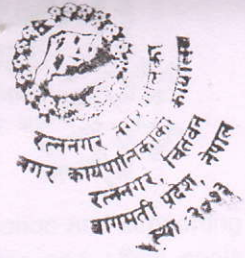 रत्ननगर नगरपालिका
नगर कार्यपालिकाको कार्यालय
रत्ननगर, चितवन
बागमती प्रदेश, नेपाल
स्था २०७३